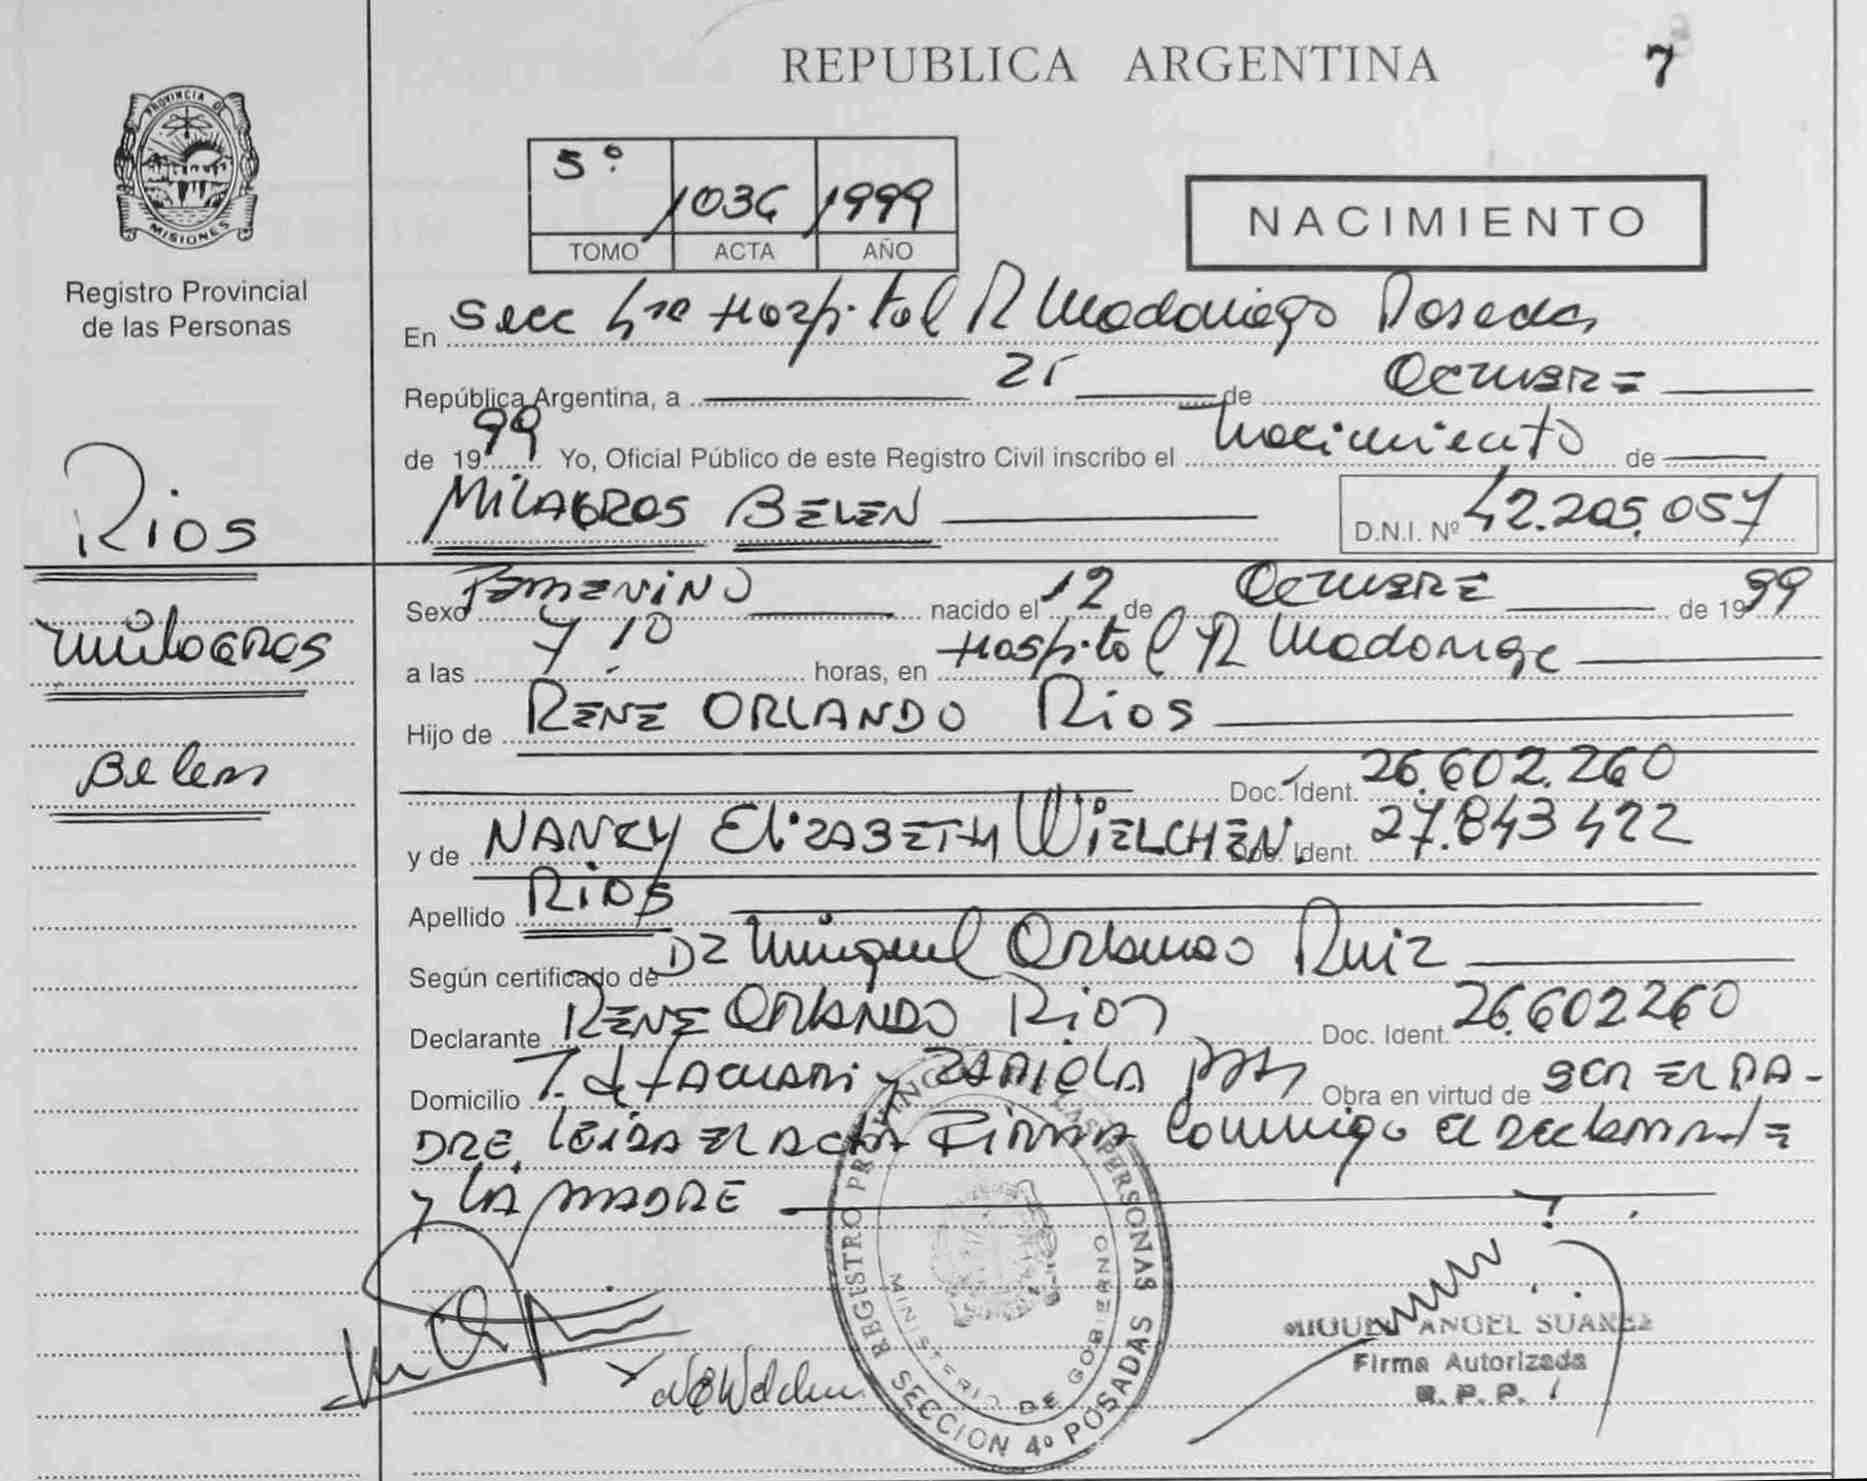 REPUBLICA ARGENTINA
7
PROVINCIA DE
MISIONES
Registro Provincial
de las Personas
5º 1036 1999
TOMO ACTA AÑO
NACIMIENTO
En Secc 4ta Hospital R Madariaga Posadas
República Argentina, a 21 de Octubre
de 1999 Yo, Oficial Público de este Registro Civil inscribo el Nacimiento de
MILAGROS BELEN D.N.I. Nº 42.205.057
Rios
Milagros
Belen
Sexo Femenino nacido el 12 de Octubre de 1999
a las 7 10 horas, en Hospital R Madariaga
Hijo de RENE ORLANDO Rios
Doc. Ident. 26.602.260
y de NANCY ElizABETH WiELCHEN Doc. Ident. 27.843 422
Apellido Rios
Según certificado de Dr Miguel Orlando Ruiz
Declarante RENE ORLANDO Rios Doc. Ident. 26.602260
Domicilio TACUARI y Obra en virtud de SER EL PA-
DRE. LEiDA EL ACTA FiRMA Conmigo el declarante
y LA MADRE
REGISTRO PROVINCIAL DE LAS PERSONAS
MINISTERIO DE GOBIERNO
SECCION 4º POSADAS
MIGUEL ANGEL SUAREZ
Firma Autorizada
R. P. P.